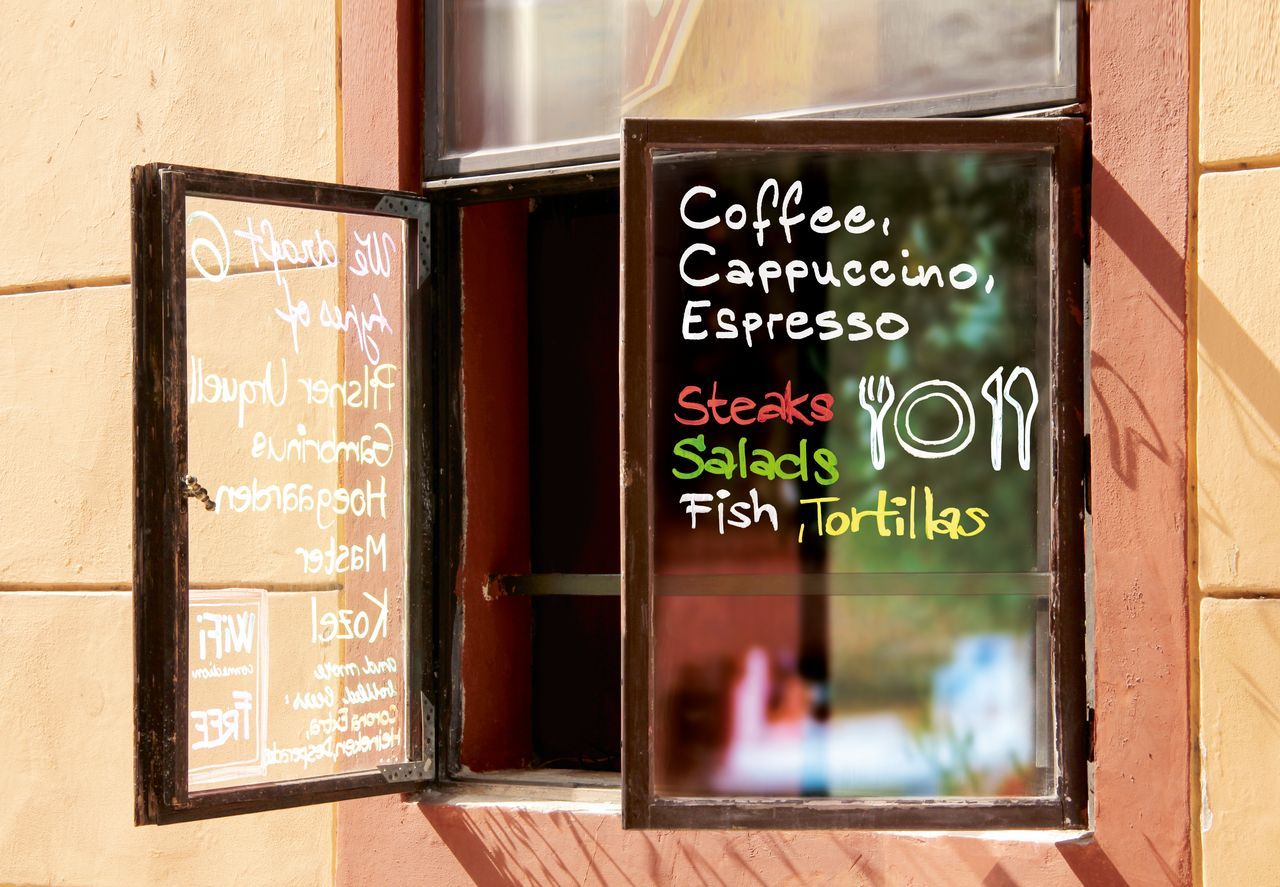 We draft 6
types of
Pilsner Urquell
Gambrinus
Hoegaarden
Master
Kozel
and more
bottled beer:
Corona Extra,
Heineken, Desperados
WiFi
connection
FREE
Coffee,
Cappuccino,
Espresso
Steaks
Salads
Fish ,Tortillas